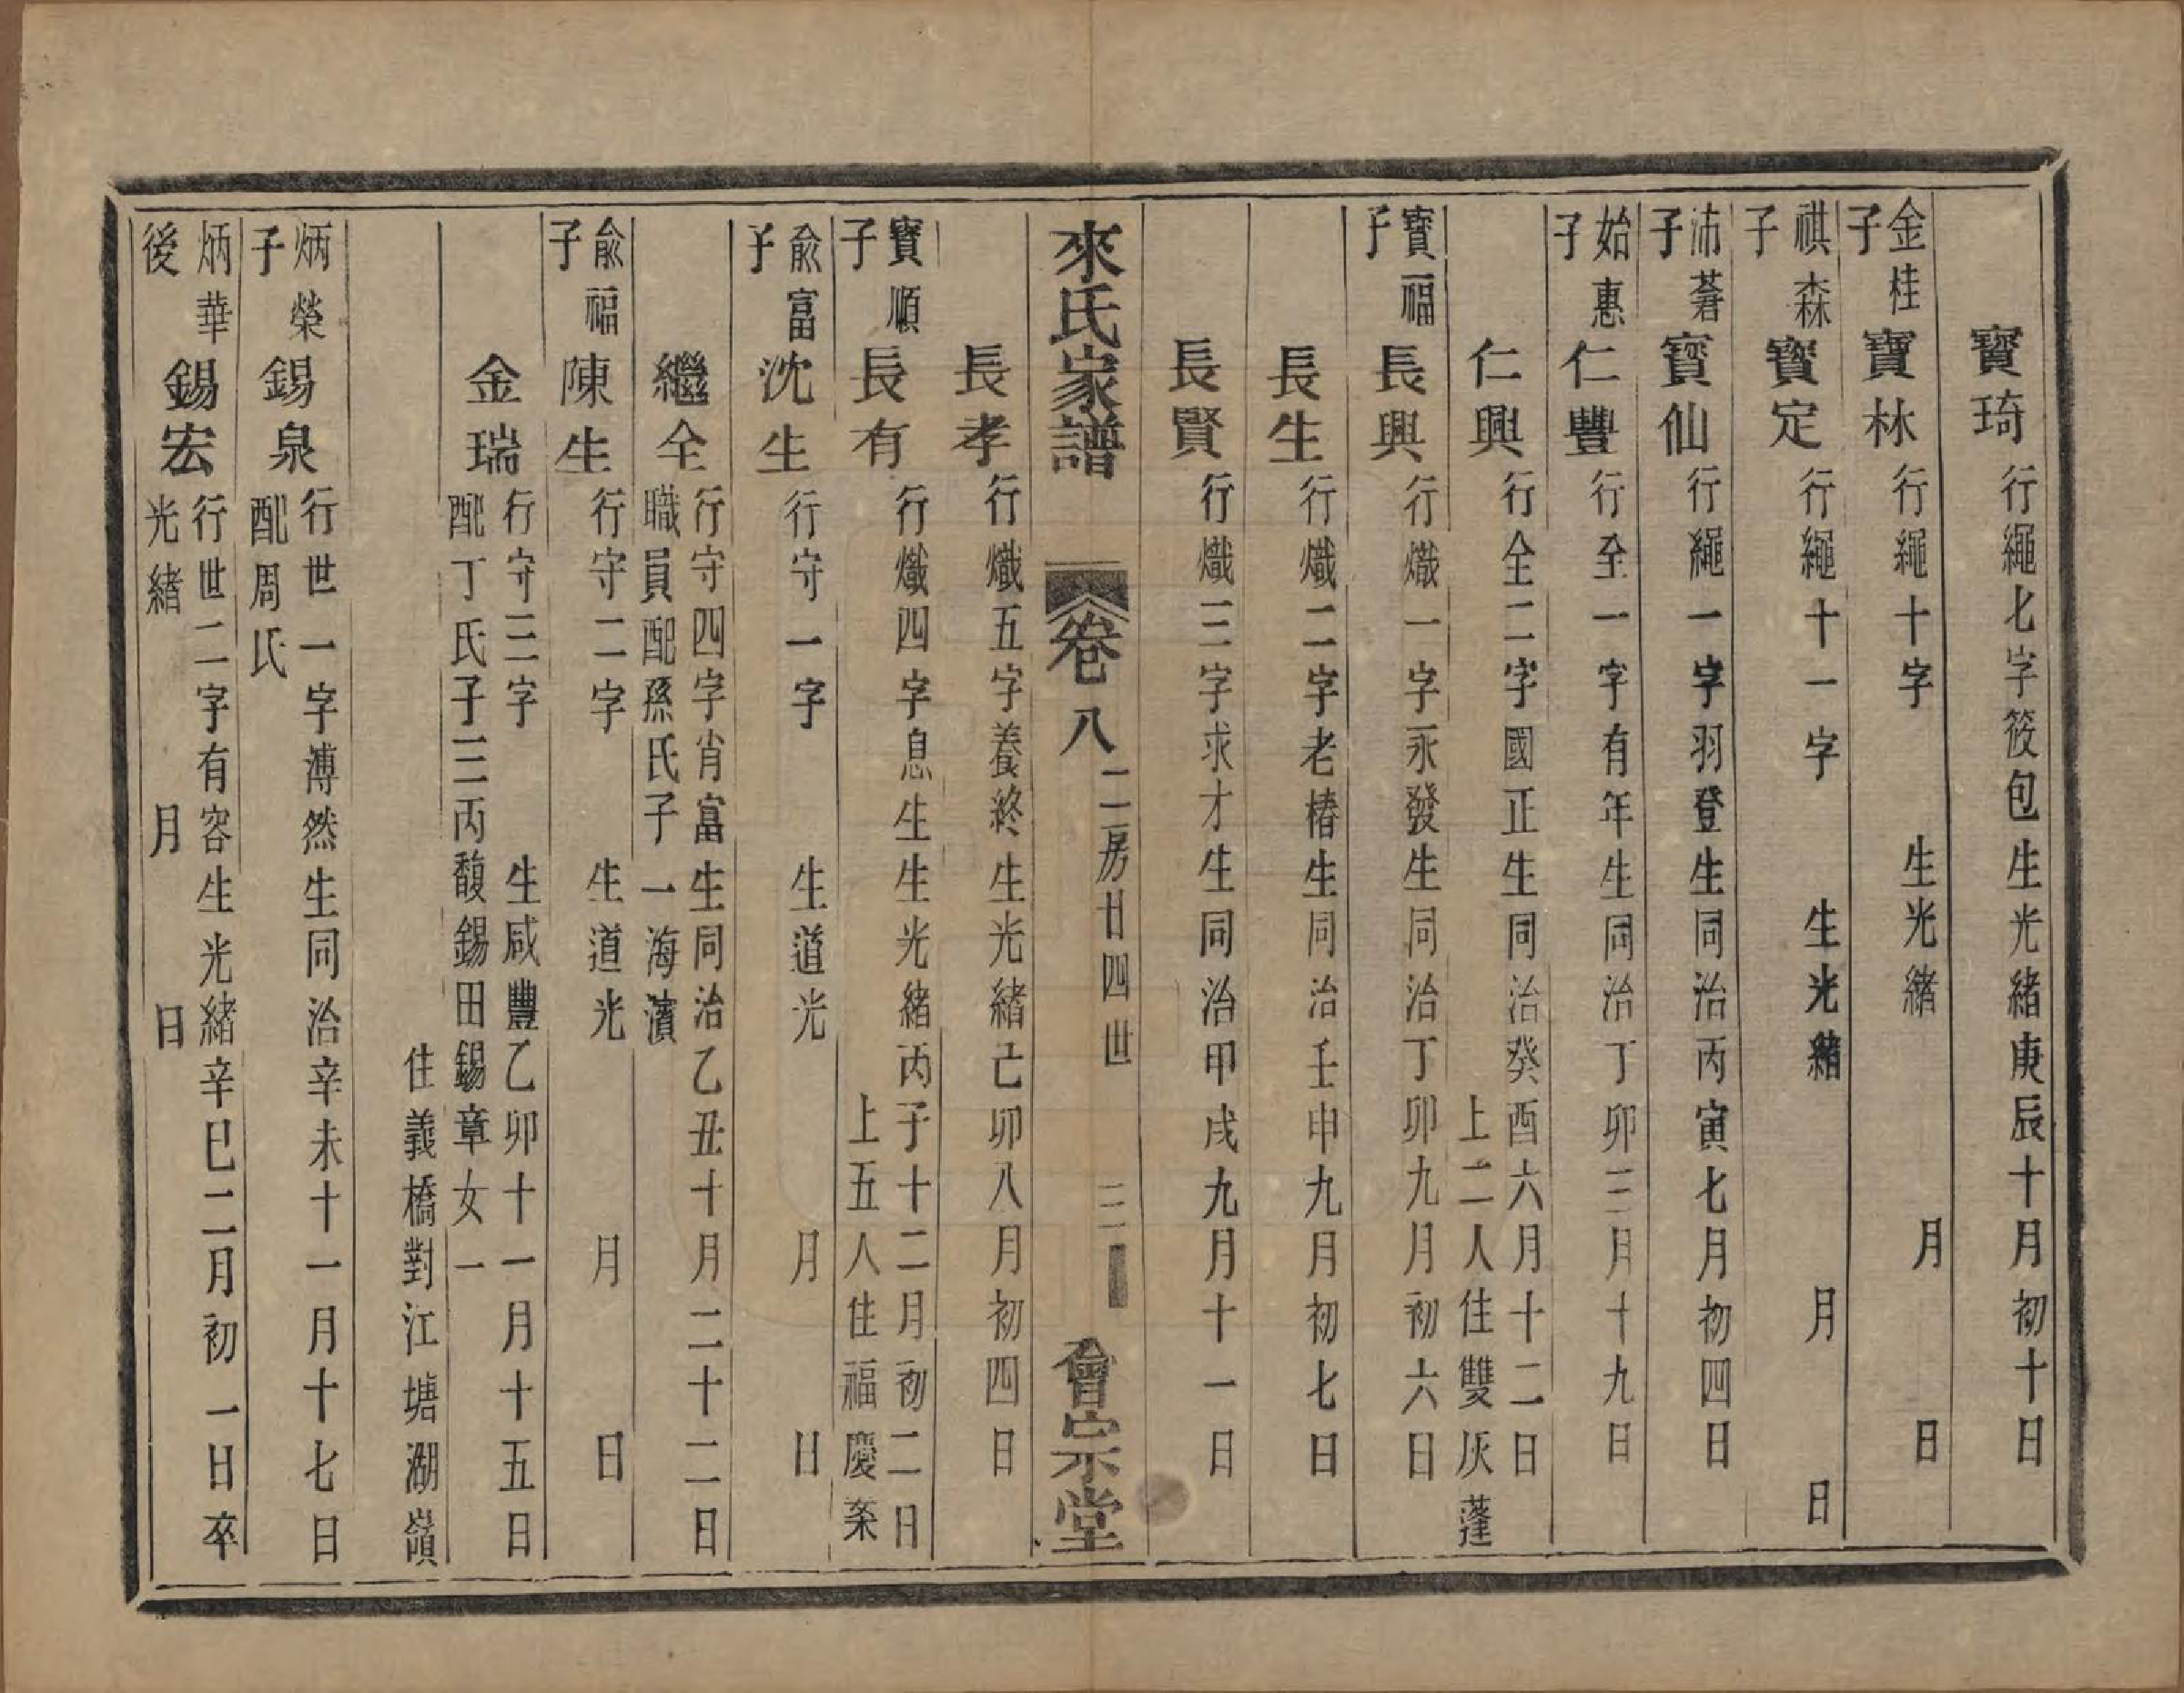 寶琦 行繩七字筱包生光緒庚辰十月初十日
金桂子 寶林 行繩十字 生光緒 月 日
祺森子 寶定 行繩十一字 生光緒 月 日
沛蓍子 寶仙 行繩一字羽登生同治丙寅七月初四日
始惠子 仁豐 行全一字有年生同治丁卯三月十九日
仁興 行全二字國正生同治癸酉六月十二日
上二人住雙灰蓬
寶福子 長興 行熾一字永發生同治丁卯九月初六日
長生 行熾二字老椿生同治壬申九月初七日
長賢 行熾三字求才生同治甲戌九月十一日
來氏家譜 卷八 二房廿四世 三 會宗堂
長孝 行熾五字養終生光緒己卯八月初四日
寶順子 長有 行熾四字息生生光緒丙子十二月初二日
上五人住福慶菴
俞富子 沈生 行守一字 生道光 月 日
繼全 行守四字肖富生同治乙丑十月二十二日
職員配孫氏子一海濱
俞福子 陳生 行守二字 生道光 月 日
金瑞 行守三字 生咸豐乙卯十一月十五日
配丁氏子三丙馥錫田錫章女一
住義橋對江塘湖嶺
炳榮子 錫泉 行世一字溥然生同治辛未十一月十七日
配周氏
炳華後 錫宏 行世二字有容生光緒辛巳二月初一日卒
光緒 月 日